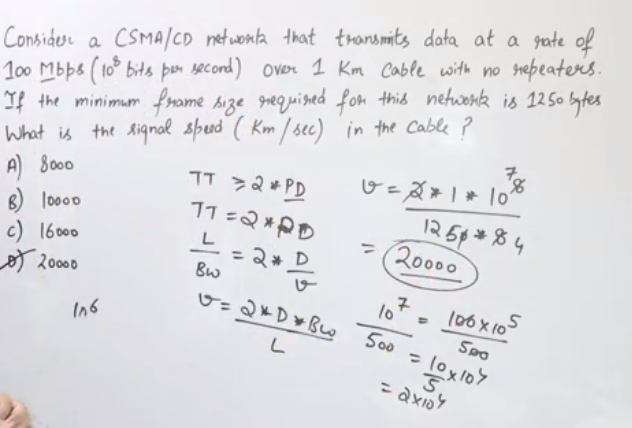 Consider a CSMA/CD network that transmits data at a rate of
100 Mbps (10⁸ bits per second) over 1 Km cable with no repeaters.
If the minimum frame size required for this network is 1250 bytes
What is the signal speed (Km/sec) in the cable?
A) 8000
B) 10000
C) 16000
D) 20000
TT ≥ 2 * PD
TT = 2 * PD
L/BW = 2 * D/v
v = 2*D*BW/L
v = 2 * 1 * 10⁸ 7 / 1250 * 8 4
= 20000
10⁷/500 = 100×10⁵/500
= 10/5 ×10⁴
= 2×10⁴